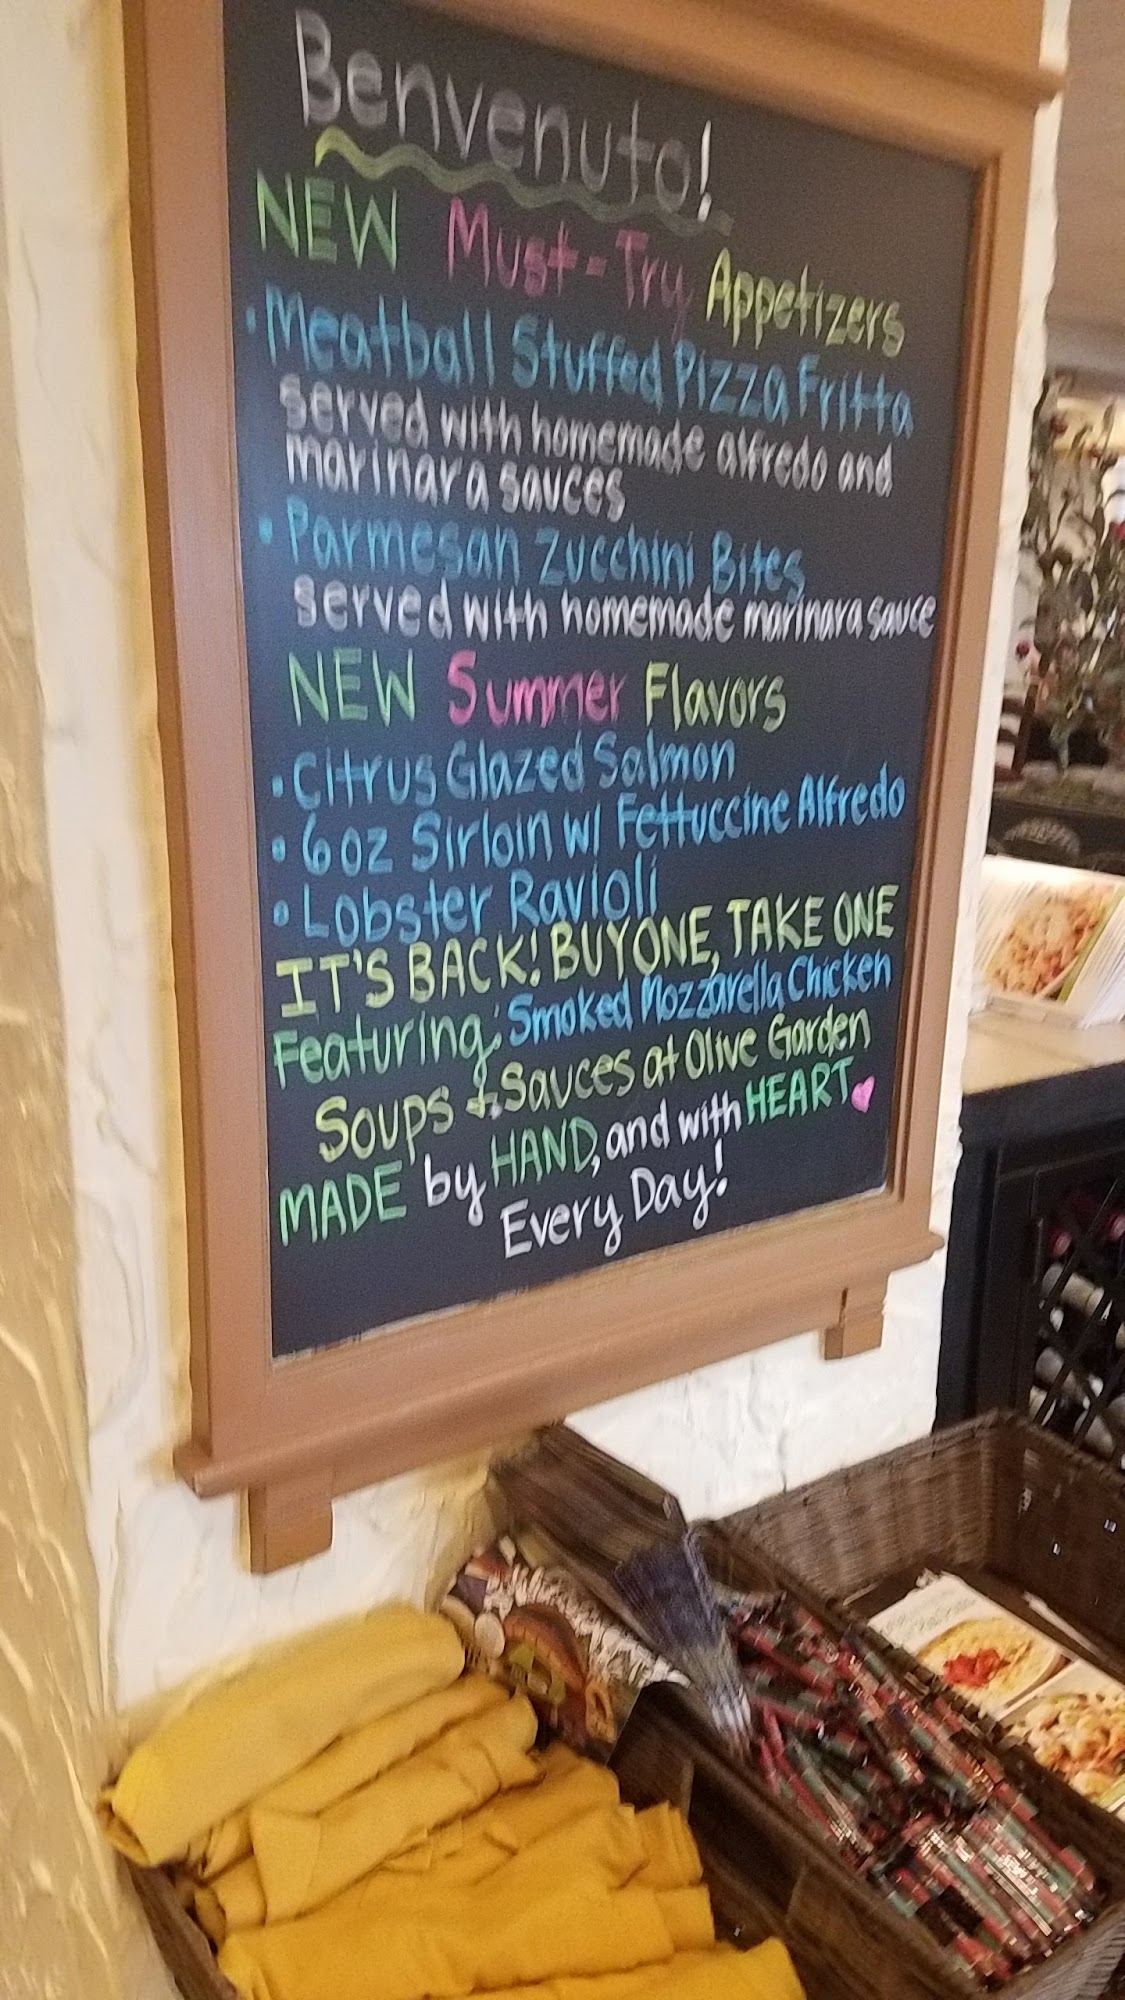 Benvenuto!
NEW Must-Try Appetizers
• Meatball Stuffed Pizza Fritta
served with homemade alfredo and
marinara sauces
• Parmesan Zucchini Bites
served with homemade marinara sauce
NEW Summer Flavors
• Citrus Glazed Salmon
• 6oz Sirloin w/ Fettuccine Alfredo
• Lobster Ravioli
IT'S BACK! BUY ONE, TAKE ONE
Featuring: Smoked Mozzarella Chicken
Soups & Sauces at Olive Garden
MADE by HAND, and with HEART
Every Day!